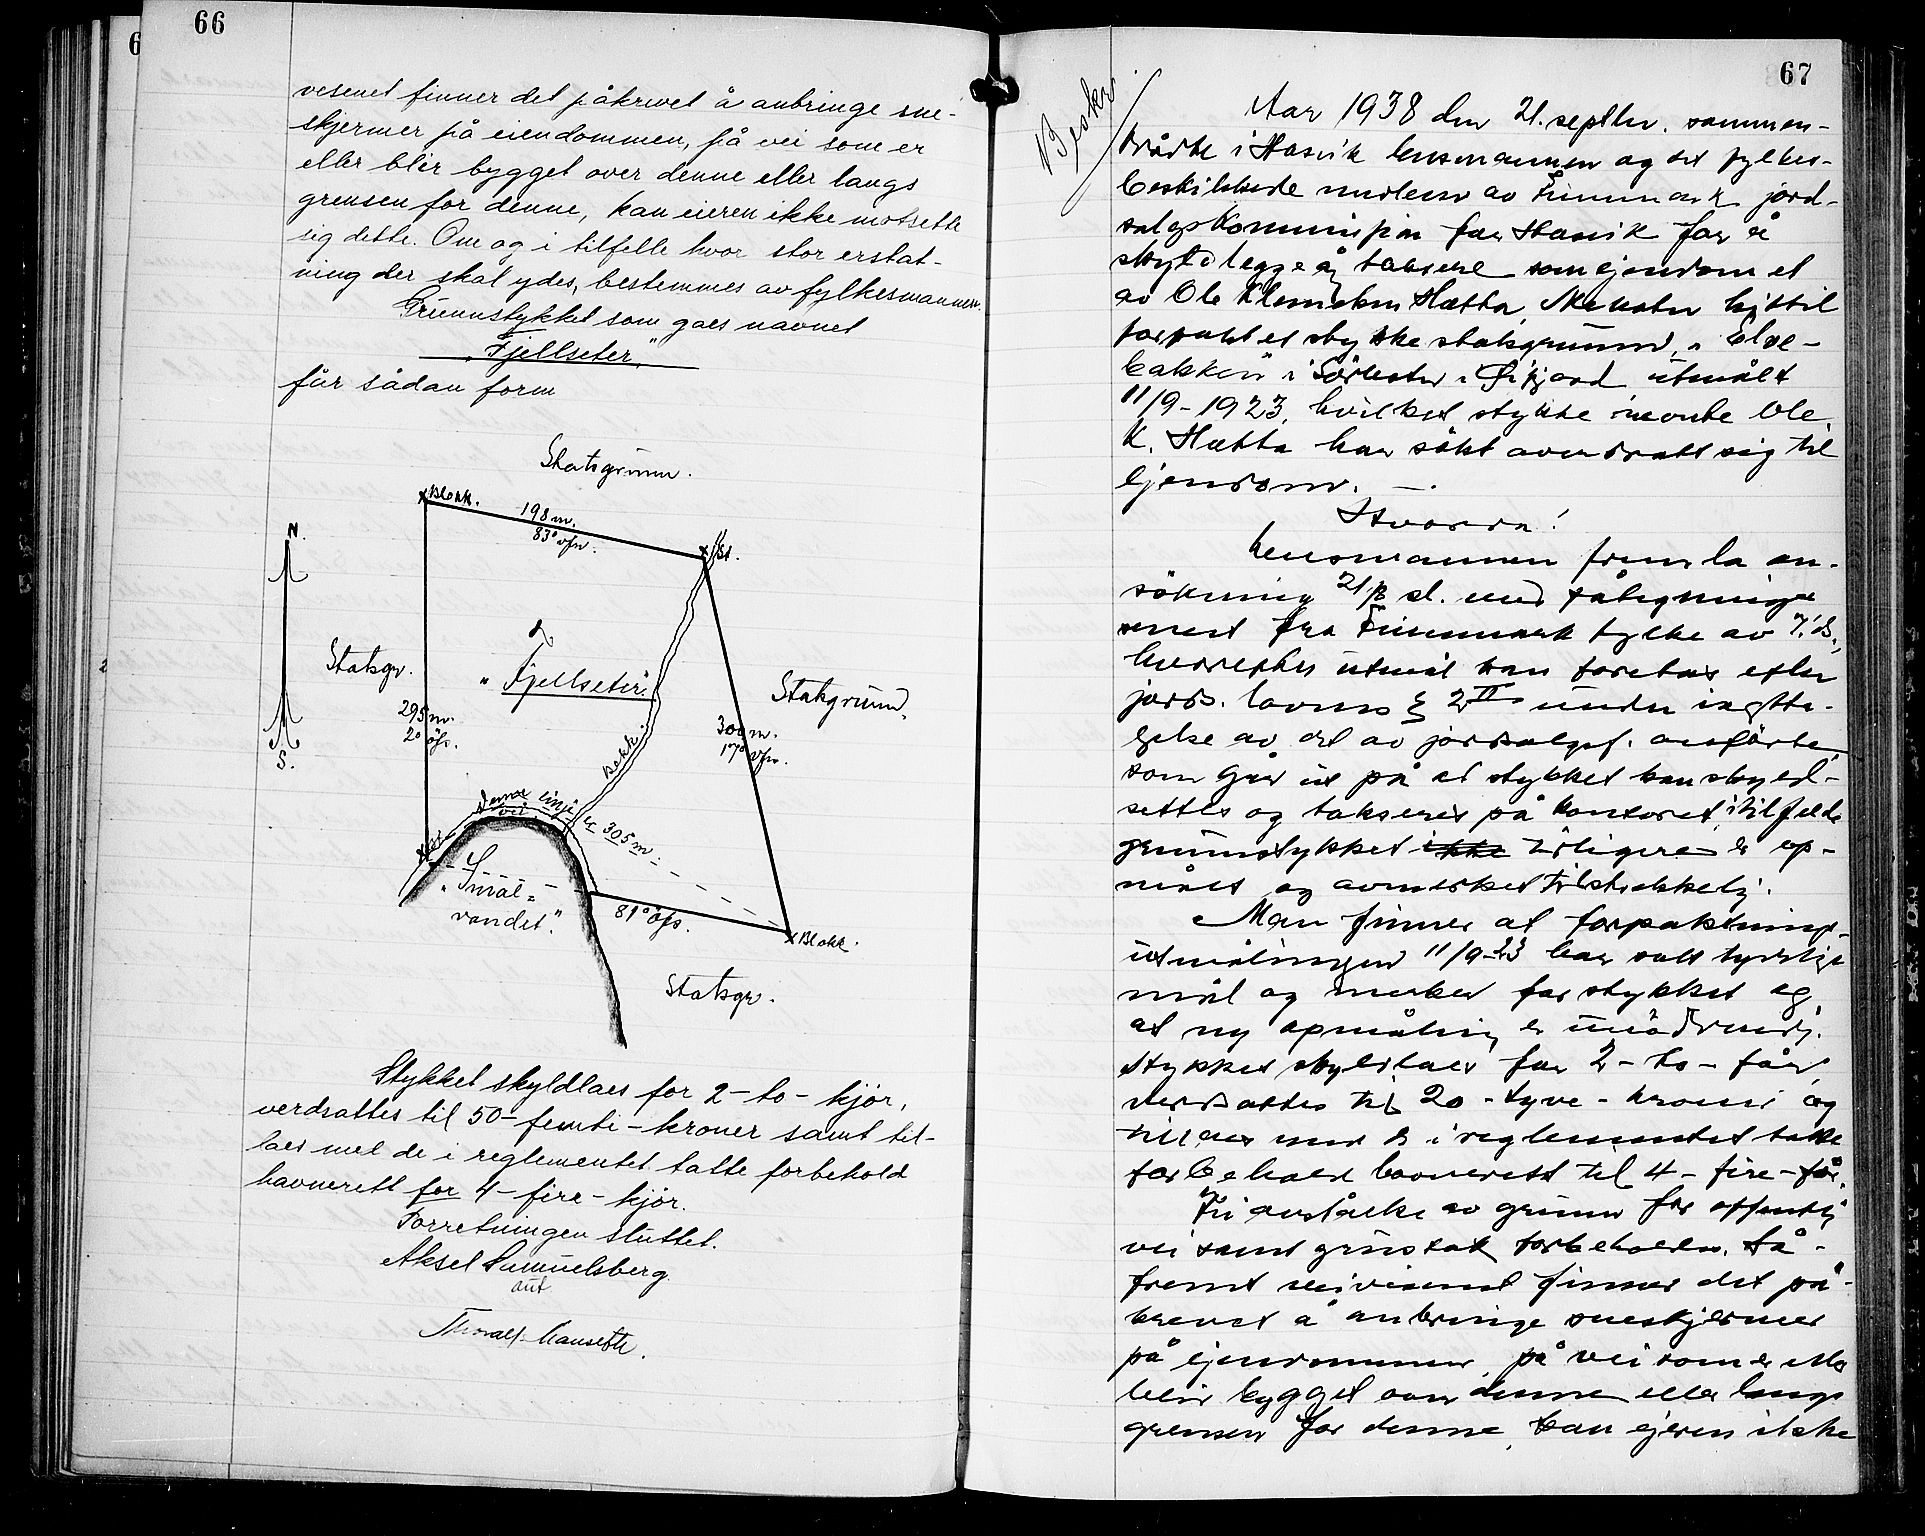 66
vesenet finner det påkrevet å anbringe sne-
skjermer på eiendommen, på vei som er
eller blir bygget over denne eller langs
grensen for denne, kan eieren ikke motsette
sig dette. Om og i tilfelle hvor stor erstat-
ning der skal ydes, bestemmes av fylkesmannen.
Grunnstykket som gaes navnet
"Fjellseter"
får sådan form
Statsgrunn.
Blokk.
198 m.
83° v/n.
N.
S.
Statsgr.
"Fjellseter"
Statsgrunn.
295 m.
2° ö/s.
300 m.
17° v/n.
Bekk.
Denne linje er 305 m.
vei
"Smal-
vandet."
81° ö/s.
Blokk.
Statsgr.
Stykket skyldlaes for 2 - to - kjör,
verdsattes til 50 - femti - kroner samt til-
laes med de i reglementet tatte forbehold
havnerett for 4 - fire - kjör.
Forretningen sluttet.
Aksel Samuelsberg
aut
67
Beskr.
Aar 1938 den 21. septbr. sammen-
trådte i Hasvik lensmannen og det fylkes-
beskikkede medlem av Finnmark jord-
salgskommisjon for Hasvik for å
skyldlegge og taksere som ejendom et
av Ole Klemetsen Hætta, hittil
forpaktet stykke statsgrunn, "Elve-
bakken" i i Öfjord utmålt
11/9-1923, hvilket stykke nevnte Ole
K. Hætta har søkt overdratt sig til
Ejendom. —.
Hvorda!
Lensmannen fremla an-
sökning 21/8 sl. med påtegninger
senest fra Finnmark fylke av
hvorefter utmål kan foretas efter
jords. lovens § 2 II under iagtta-
gelse av det av jordsalgsf. anförte,
som går ut på at stykket kan skyld-
settes og takseres på kontoret, i tilfelde
grunnstykket ikke tidligere er op-
målt og avmerket tilstrekkelig.
Man finner at forpaktnings-
utmålingen 11/9-23 har satt tydelige
mål og merker for stykket og
at ny opmåling er unödvendig.
Stykket skyldlaes for 2 - to - får,
verdsattes til 20 - tyve - kroner og
tillaes med de i reglementet tatte
forbehold havnerett til 4 - fire - får.
Fri avståelse av grunn for offentlig
vei samt grustak forbeholdes. Så-
fremt veivesenet finner det på-
krevet å anbringe sneskjermer
på ejendommen, på vei som er eller
blir bygget over denne eller langs
grensen for denne, kan ejeren ikke